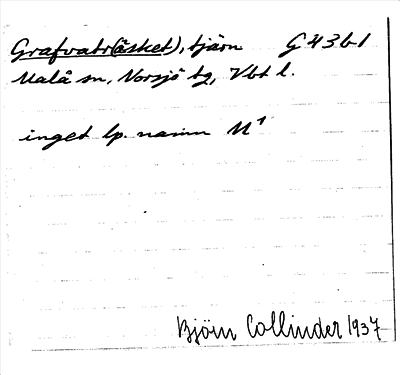 Grafvatr(åsket), tjärn G 43 b 1
Malå sn, Norsjö tg, Vbt l.
inget lp. namn M¹
Björn Collinder 1937